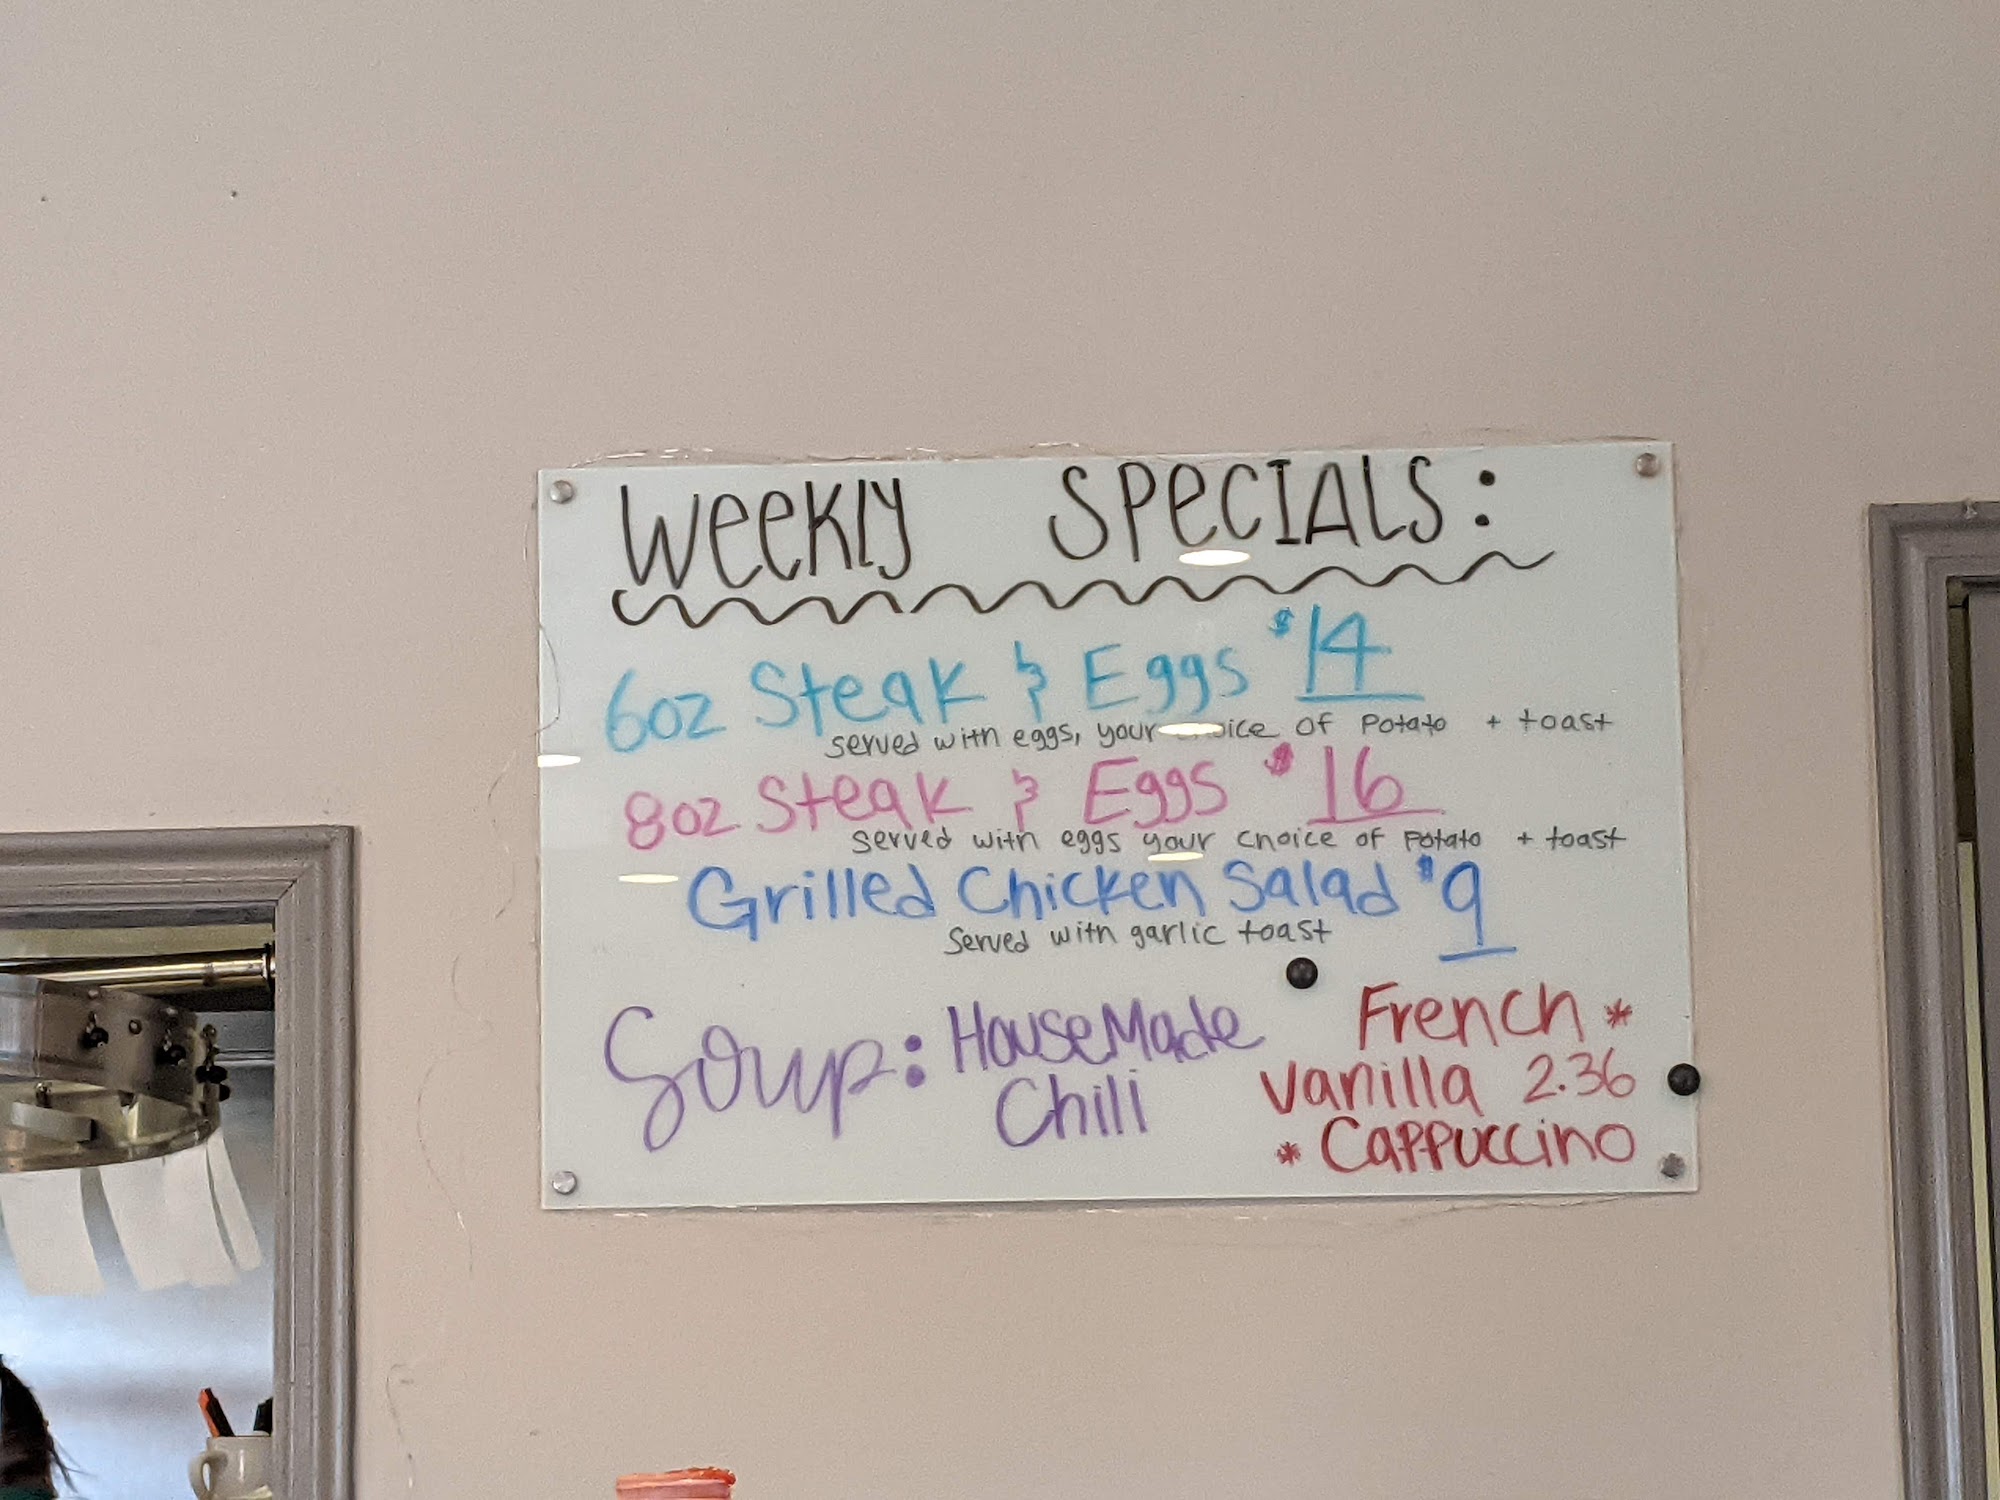 Weekly Specials:
6oz Steak & Eggs $14
served with eggs, your choice of potato + toast
8oz Steak & Eggs $16
served with eggs your choice of potato + toast
Grilled Chicken Salad $9
Served with garlic toast
Soup: HouseMade
Chili
French *
Vanilla 2.36
* Cappuccino